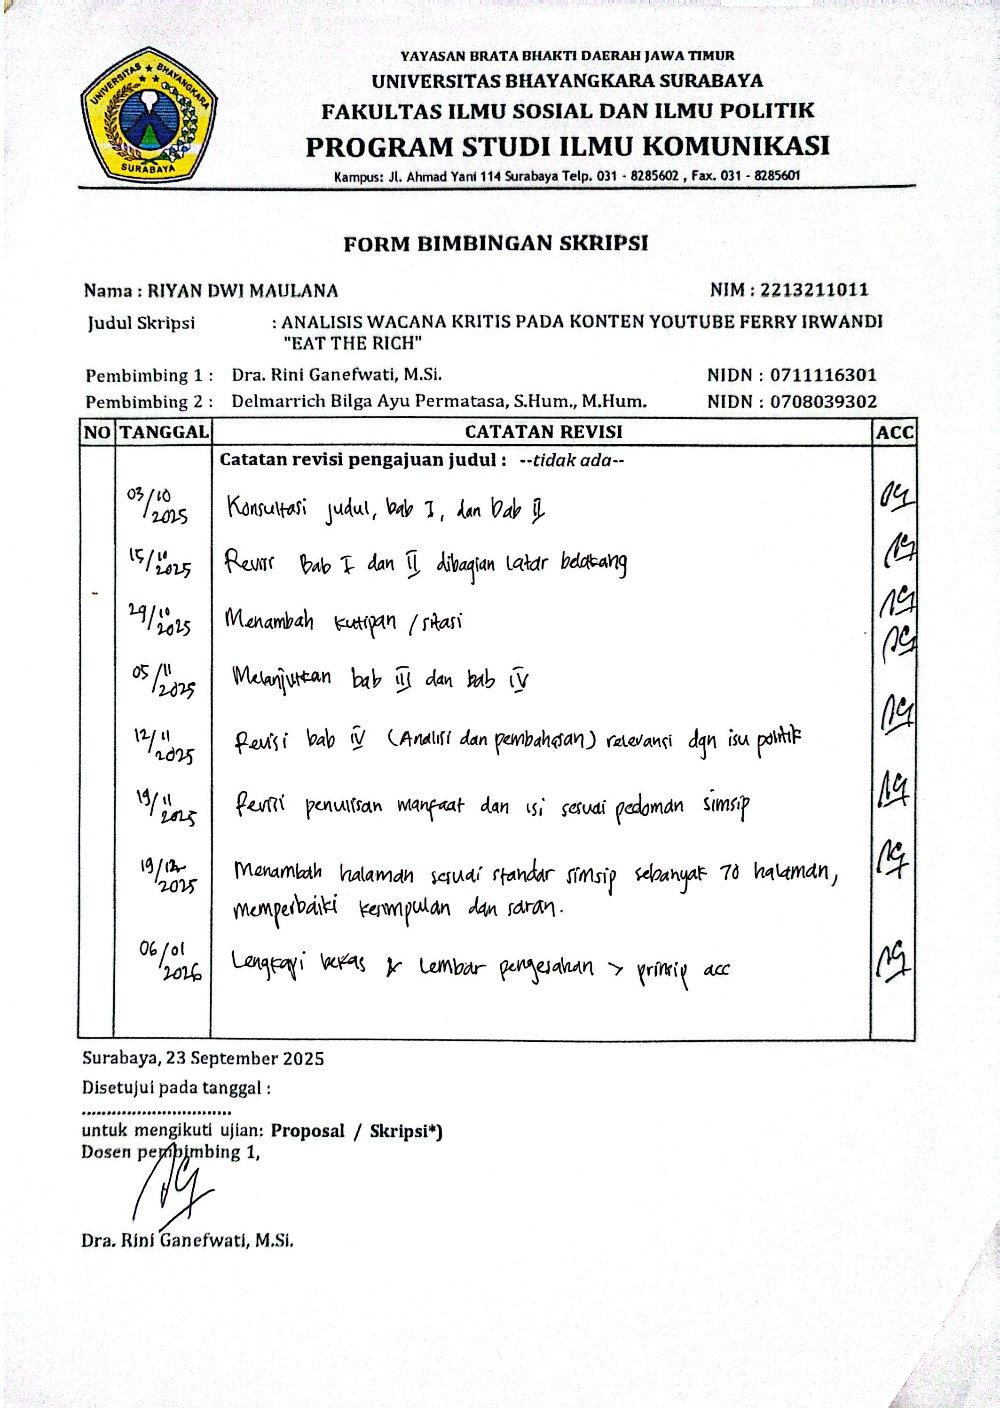 YAYASAN BRATA BHAKTI DAERAH JAWA TIMUR
UNIVERSITAS BHAYANGKARA SURABAYA
FAKULTAS ILMU SOSIAL DAN ILMU POLITIK
PROGRAM STUDI ILMU KOMUNIKASI
Kampus: Jl. Ahmad Yani 114 Surabaya Telp. 031 - 8285602 , Fax. 031 - 8285601
UNIVERSITAS BHAYANGKARA
SURABAYA
FORM BIMBINGAN SKRIPSI
Nama : RIYAN DWI MAULANA NIM : 2213211011
Judul Skripsi : ANALISIS WACANA KRITIS PADA KONTEN YOUTUBE FERRY IRWANDI
"EAT THE RICH"
Pembimbing 1 : Dra. Rini Ganefwati, M.Si. NIDN : 0711116301
Pembimbing 2 : Delmarrich Bilga Ayu Permatasa, S.Hum., M.Hum. NIDN : 0708039302
NO TANGGAL CATATAN REVISI ACC
Catatan revisi pengajuan judul : --tidak ada--
03/10 2025 Konsultasi judul, bab I, dan bab II
15/10 2025 Revisi Bab I dan II dibagian latar belakang
29/10 2025 Menambah kutipan / sitasi
05/11 2025 Melanjutkan bab III dan bab IV
12/11 2025 Revisi bab IV (Analisi dan pembahasan) relevansi dgn isu politik
19/11 2025 Revisi penulisan manfaat dan isi sesuai pedoman simsip
19/12 2025 Menambah halaman sesuai standar simsip sebanyak 70 halaman,
memperbaiki kesimpulan dan saran.
06/01 2026 Lengkapi bekas & Lembar pengesahan > prinsip acc
Surabaya, 23 September 2025
Disetujui pada tanggal :
..............................
untuk mengikuti ujian: Proposal / Skripsi*)
Dosen pembimbing 1,
Dra. Rini Ganefwati, M.Si.